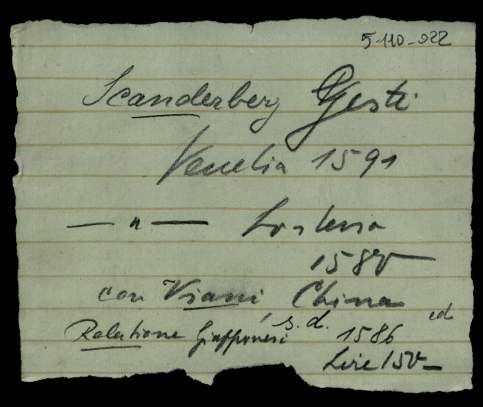 5-110-922
Scanderberg Gesti
Venetia 1591
— " — Lo stesso
1580
con Viani China
Relatione Giapponesi s.d. 1586 ed
Lire 150—